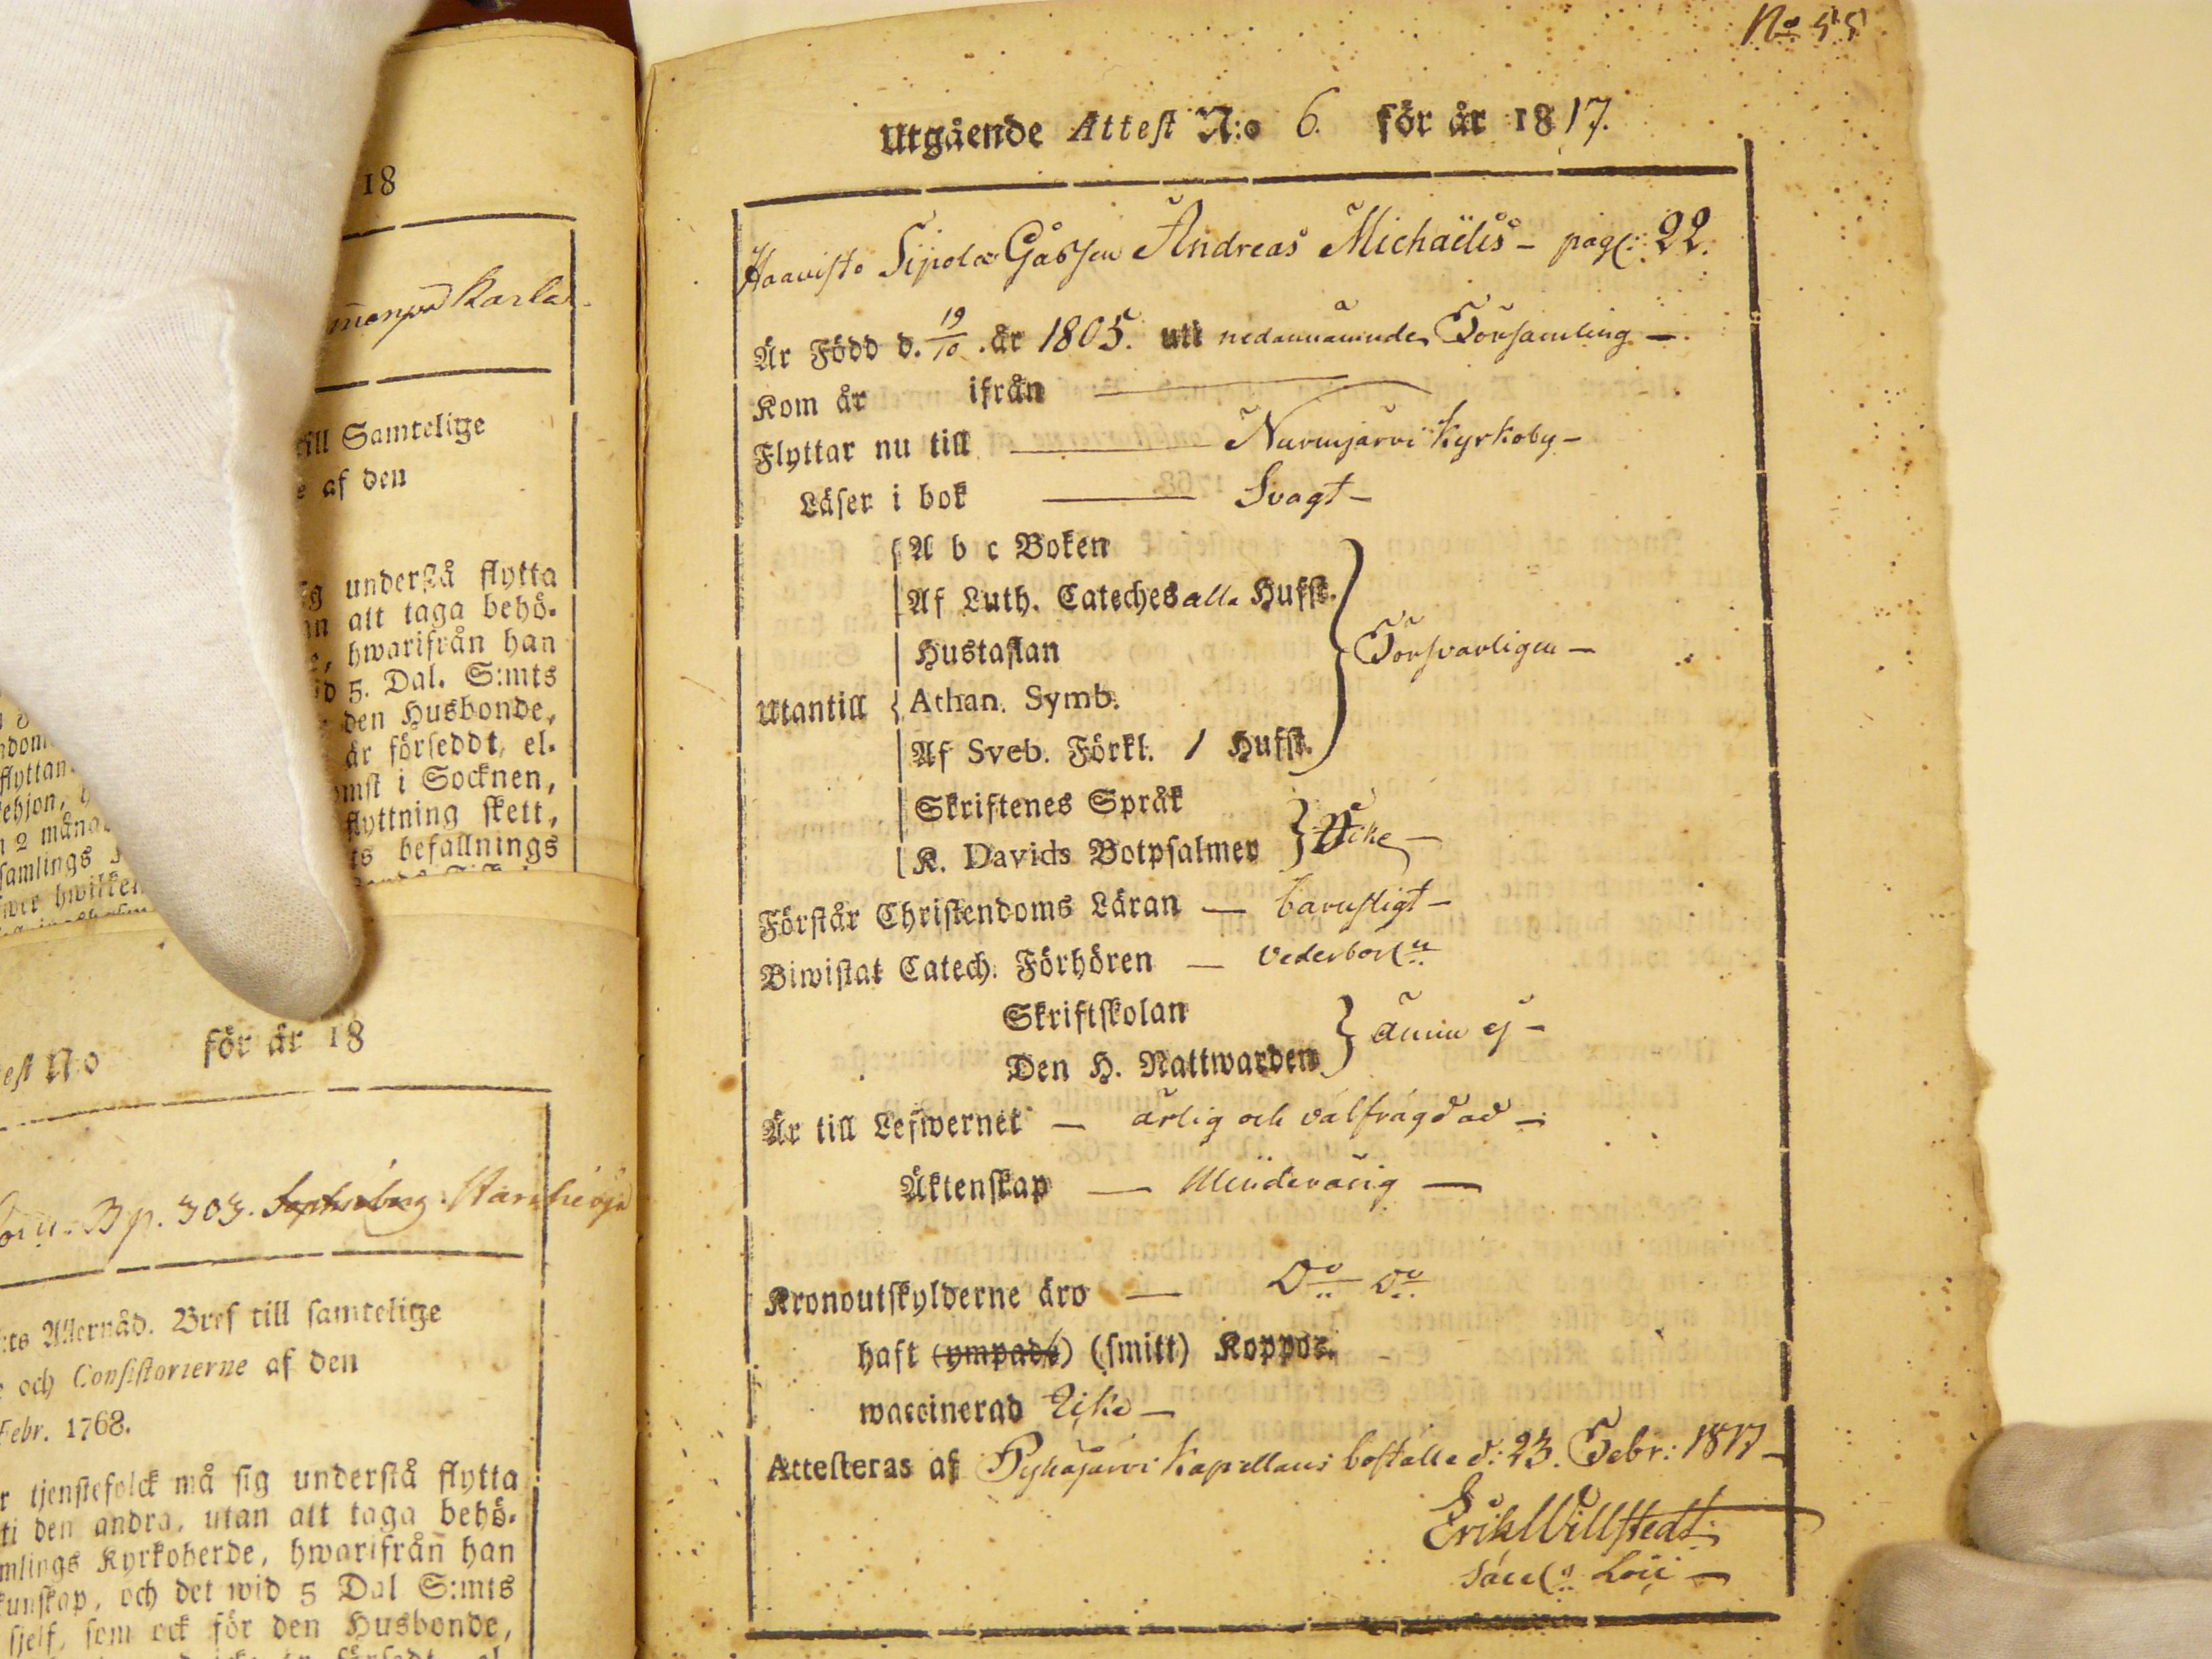 18
Karla
till Samtelige
af den
understå flytta
att taga behö-
hwarifrån han
5. Dal. S:mts
den Husbonde,
är förseddt, el-
i Socknen,
flyttning skett,
befallnings
flyttan
2 måna
samlings
hwilken
N:o för år 18
B p. 303.
Allernåd. Bref till samtelige
och Consistorierne af den
Febr. 1768.
tjenstefolck må sig understå flytta
den andra, utan att taga behö-
Kyrkoherde, hwarifrån han
och det wid 5 Dal S:mts
sjelf, som ock för den Husbonde,
No 55
Utgående Attest N:o 6. för år 1817.
Haavisto Sipola Gossen Andreas Michaëlis – pag: 22.
Är Född d. 19/10. år 1805. uti nedannämnde Församling –
Kom år ifrån —
Flyttar nu till — Nurmijärvi Kyrkoby –
Läser i bok — Svagt –
A b c Boken
Af Luth. Cateches alla Hufst.
Hustaflan
Försvarligen –
Utantill Athan. Symb.
Af Sveb. Förkl. 1 Hufst.
Skriftenes Språk
K. Davids Botpsalmer Icke –
Förstår Christendoms Läran — barnsligt –
Biwistat Catech. Förhören —
Skriftskolan
Den H. Nattwarden ännu ej –
Är till Lefwernet — ärlig och välfrägdad –
Äktenskap — Minderårig —
Kronoutskylderne äro — Do Do
haft (ympade) (smitt) Koppor.
waccinerad Icke –
Attesteras af Pyhäjärvi Kapellans boställe d: 23. Febr: 1817 –
Erik Willstedt
Sacell: Loci –